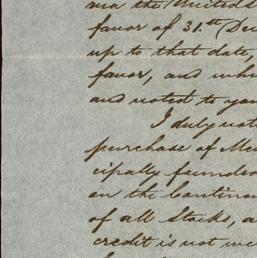 via the United S
favor of 31.st Dec
up to that date,
favor, and whi
and noted to you
I duly not
purchase of Me
cipally founded
on the Continen
of all Stocks, a
credit is not we